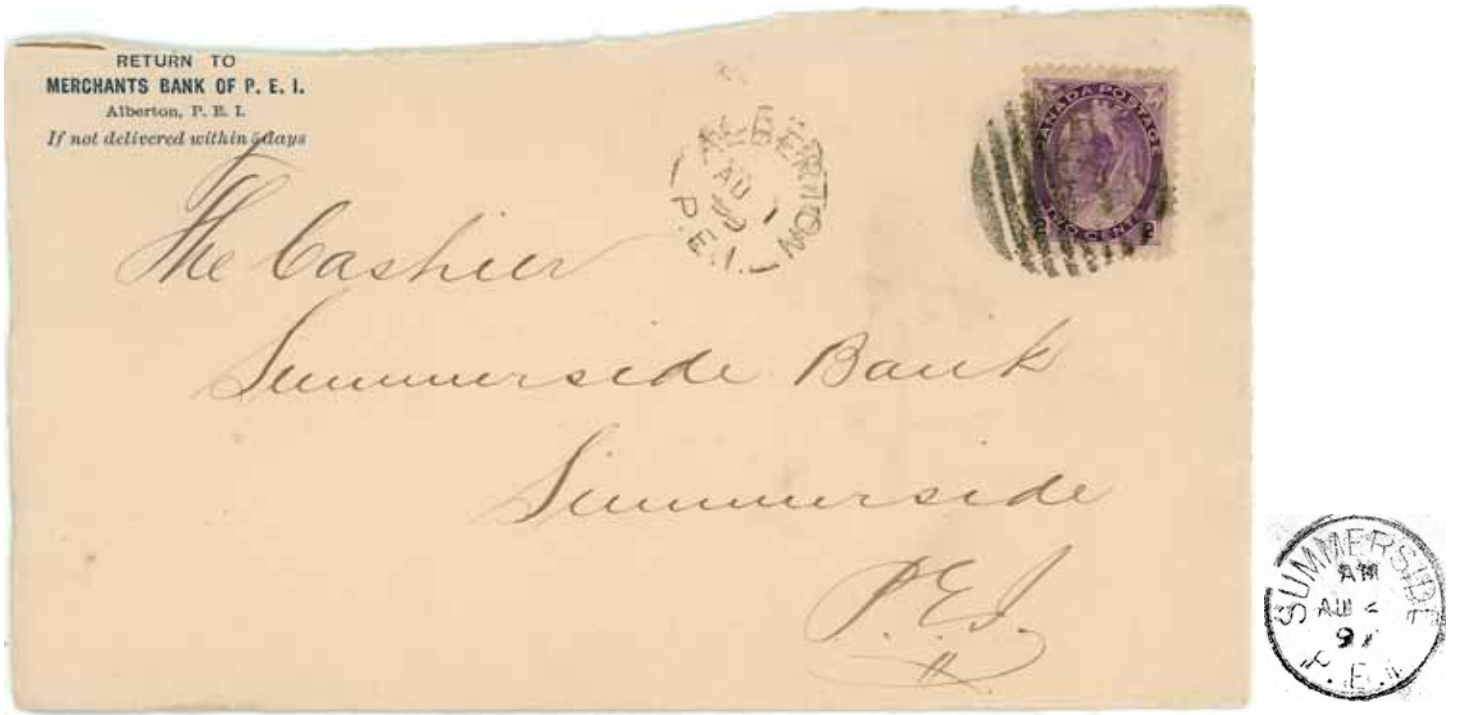 RETURN TO
MERCHANTS BANK OF P. E. I.
Alberton, P. E. I.
If not delivered within 5 days
ALBERTON
AU 1
P.E.I.
CANADA POSTAGE
TWO CENTS
2 2
The Cashier
Summerside Bank
Summerside
P.E.I.
SUMMERSIDE
AM
AU
P.E.I.